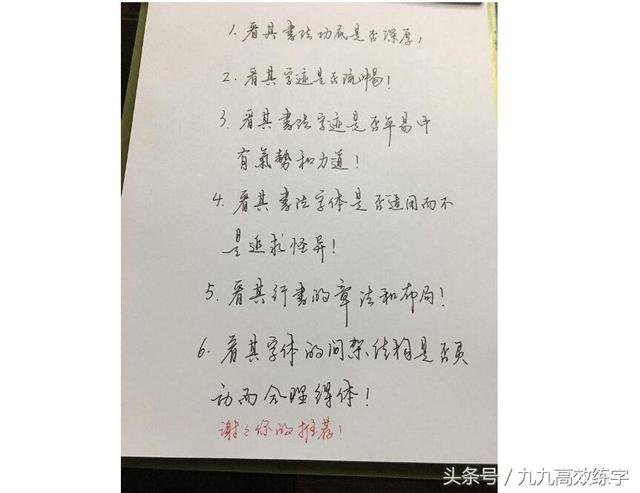 1. 看其書法功底是否深厚!
2. 看其字迹是否流畅!
3. 看其書法字迹是否平易中
有氣势和力道!
4. 看其書法字体是否适用而不
是追求怪异!
5. 看其行書的章法和布局!
6. 看其字体的间架结构是否灵
动而合理得体!
谢々你的推荐!
头条号 / 九九高效练字